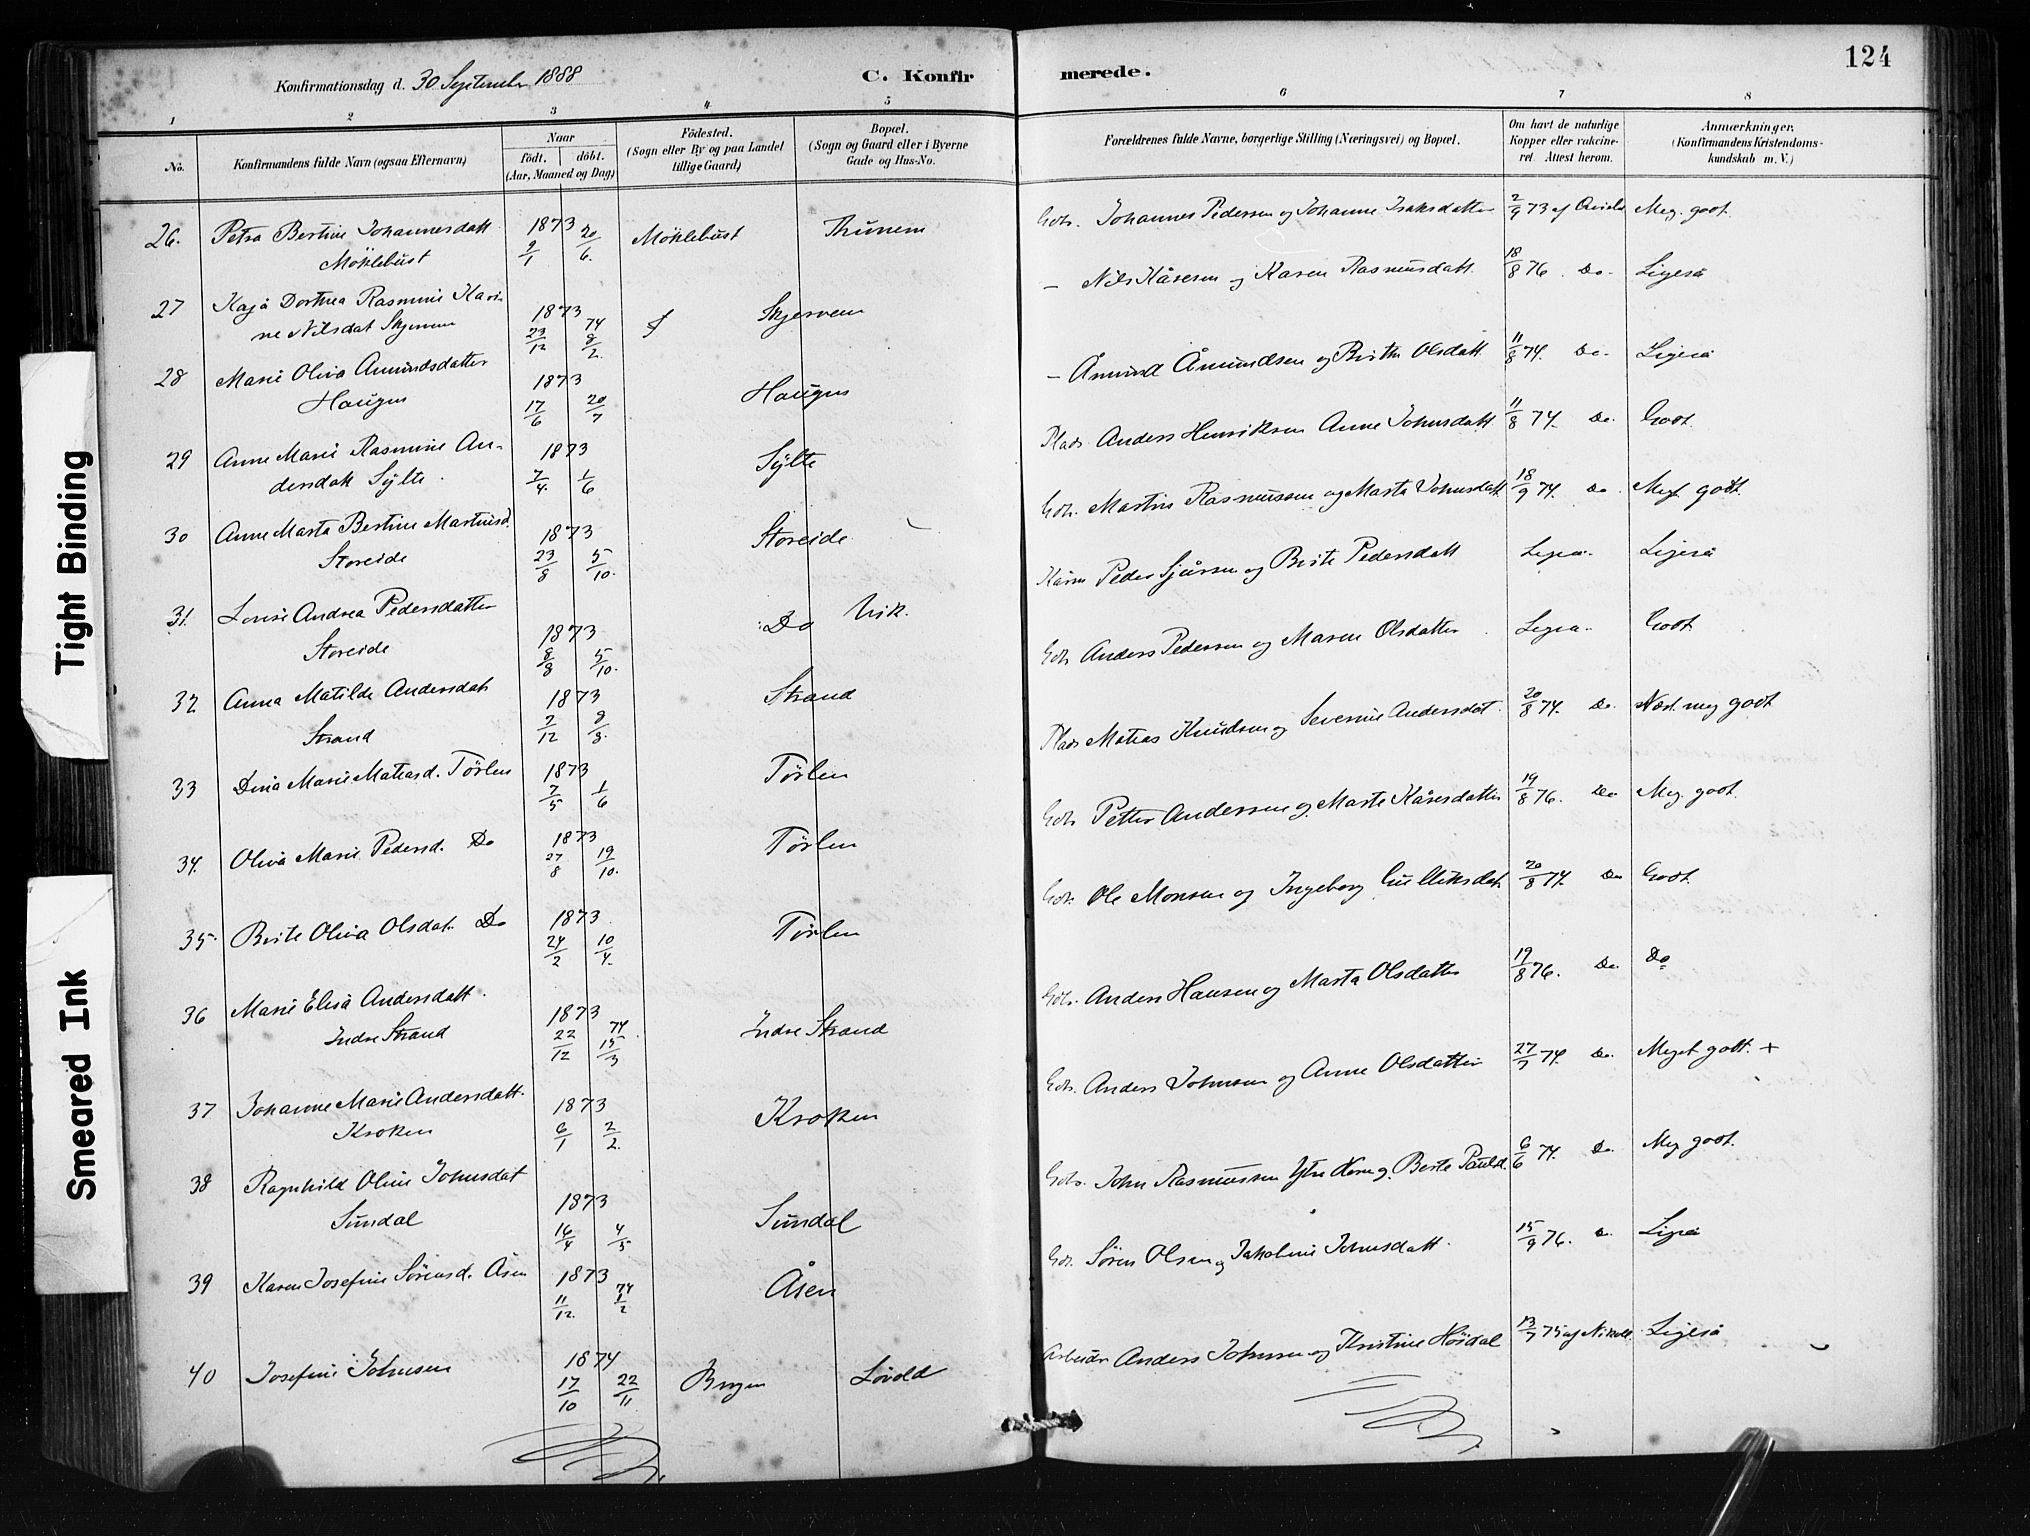 124
Konfirmationsdag d. 30 September 1888
C. Konfirmerede.
1 2 3 4 5 6 7 8
No. Konfirmandens fulde Navn (ogsaa Efternavn)
Naar født. døbt. (Aar, Maaned og Dag)
Födested. (Sogn eller By og paa Landet tillige Gaard)
Bopæl. (Sogn og Gaard eller i Byerne Gade og Hus-No.
Forældrenes fulde Navne, borgerlige Stilling (Næringsvei) og Bopæl.
Om havt de naturlige Kopper eller vakcineret Attest herom.
Anmærkninger. (Konfirmandens Kristendomskundskab m. V.)
26. Petra Bertine Johannesdatt 1873 Möklebust Thunem Gdr. Johannes Pedersen og Johanne Isaksdatter 2/9 73 af Meg. godt.
Möklebust 9/1 20/6.
27 Kaja Dorthea Rasmine Kari- 1873 Skjerven — Nils Kåresen og Karen Rasmusdatt. 18/8 76. Do. Ligeså
ne Nilsdat Skjerven 23/12 74 8/2
28 Marie Oliva Amundsdatter 1873 Haugen — Åmund Åmundsen og Berthe Olsdatt. 11/8 74. Do. Ligeså
Haugen 17/6 20/7
29 Anne Marie Rasmine An- 1873 Sylte Plads Anders Henriksen Anne Johnsdatt 11/8 74. Do. Godt.
dersdatt Sylte. 7/4. 1/6
30 Anne Marta Bertine Martinsd. 1873 Storeide Gdr. Martin Rasmussen og Marta Johnsdatt 18/9 74. Do. Meget godt.
Storeide 23/8 5/10.
31. Lovise Andrea Pedersdatter 1873 Do Vik. Peder Sjursen og Berte Pedersdatt Ligeså Ligeså
Storeide 8/8 5/10.
32 Anna Matilde Andersdat 1873 Strand Gdr Anders Pedersen og Maren Olsdatter Ligeså Godt.
Strand 7/12 8/8.
33 Dina Marie Matiasd. Törlen 1873 Törlen Plads Matias Knudsen og Severine Andersdat. 20/8 74. Do. Næst. meg godt
7/5 1/6
34. Oliva Marie Pedersd. Do 1873 Törlen Gdr Petter Andersen og Marte Kåresdatter 19/8 76. Do Meg. godt.
27/8 19/10.
35. Berte Oliva Olsdat. Do 1873 Törlen Gdr. Ole Monsen og Ingeborg Gulliksdat 20/8 74. Do Godt.
24/2 10/4.
36 Marie Elisa Andersdatt. 1873 Indre Strand Gdr. Anders Hansen og Marta Olsdatter 19/8 76. Do. Do
Indre Strand 22/12 74 15/3
37 Johanne Marie Andersdatt. 1873 Kroken Gdr. Anders Johnsen og Anne Olsdatter 27/7 74. Do. Meget godt. +
Kroken 6/1 2/2.
38 Ragnhild Oline Johnsdat 1873 Sundal Gdr. John Rasmussen og Berte Pauld. 6/6 74. Do. Meg godt.
Sundal 16/4 4/5
39 Karen Josefine Sörensd. Åsen 1873 Åsen Gdr. Sören Olsen og Jakobine Johnsdatt. 15/9 76. Do. Ligeså
11/12. 74 1/2
40 Josefine Johnsen 1874 Bergen Lövold Arbeider Anders Johnsen og Kristine Höidal 13/7 75 af Ligeså
17/10 22/11
Tight Binding
Smeared Ink